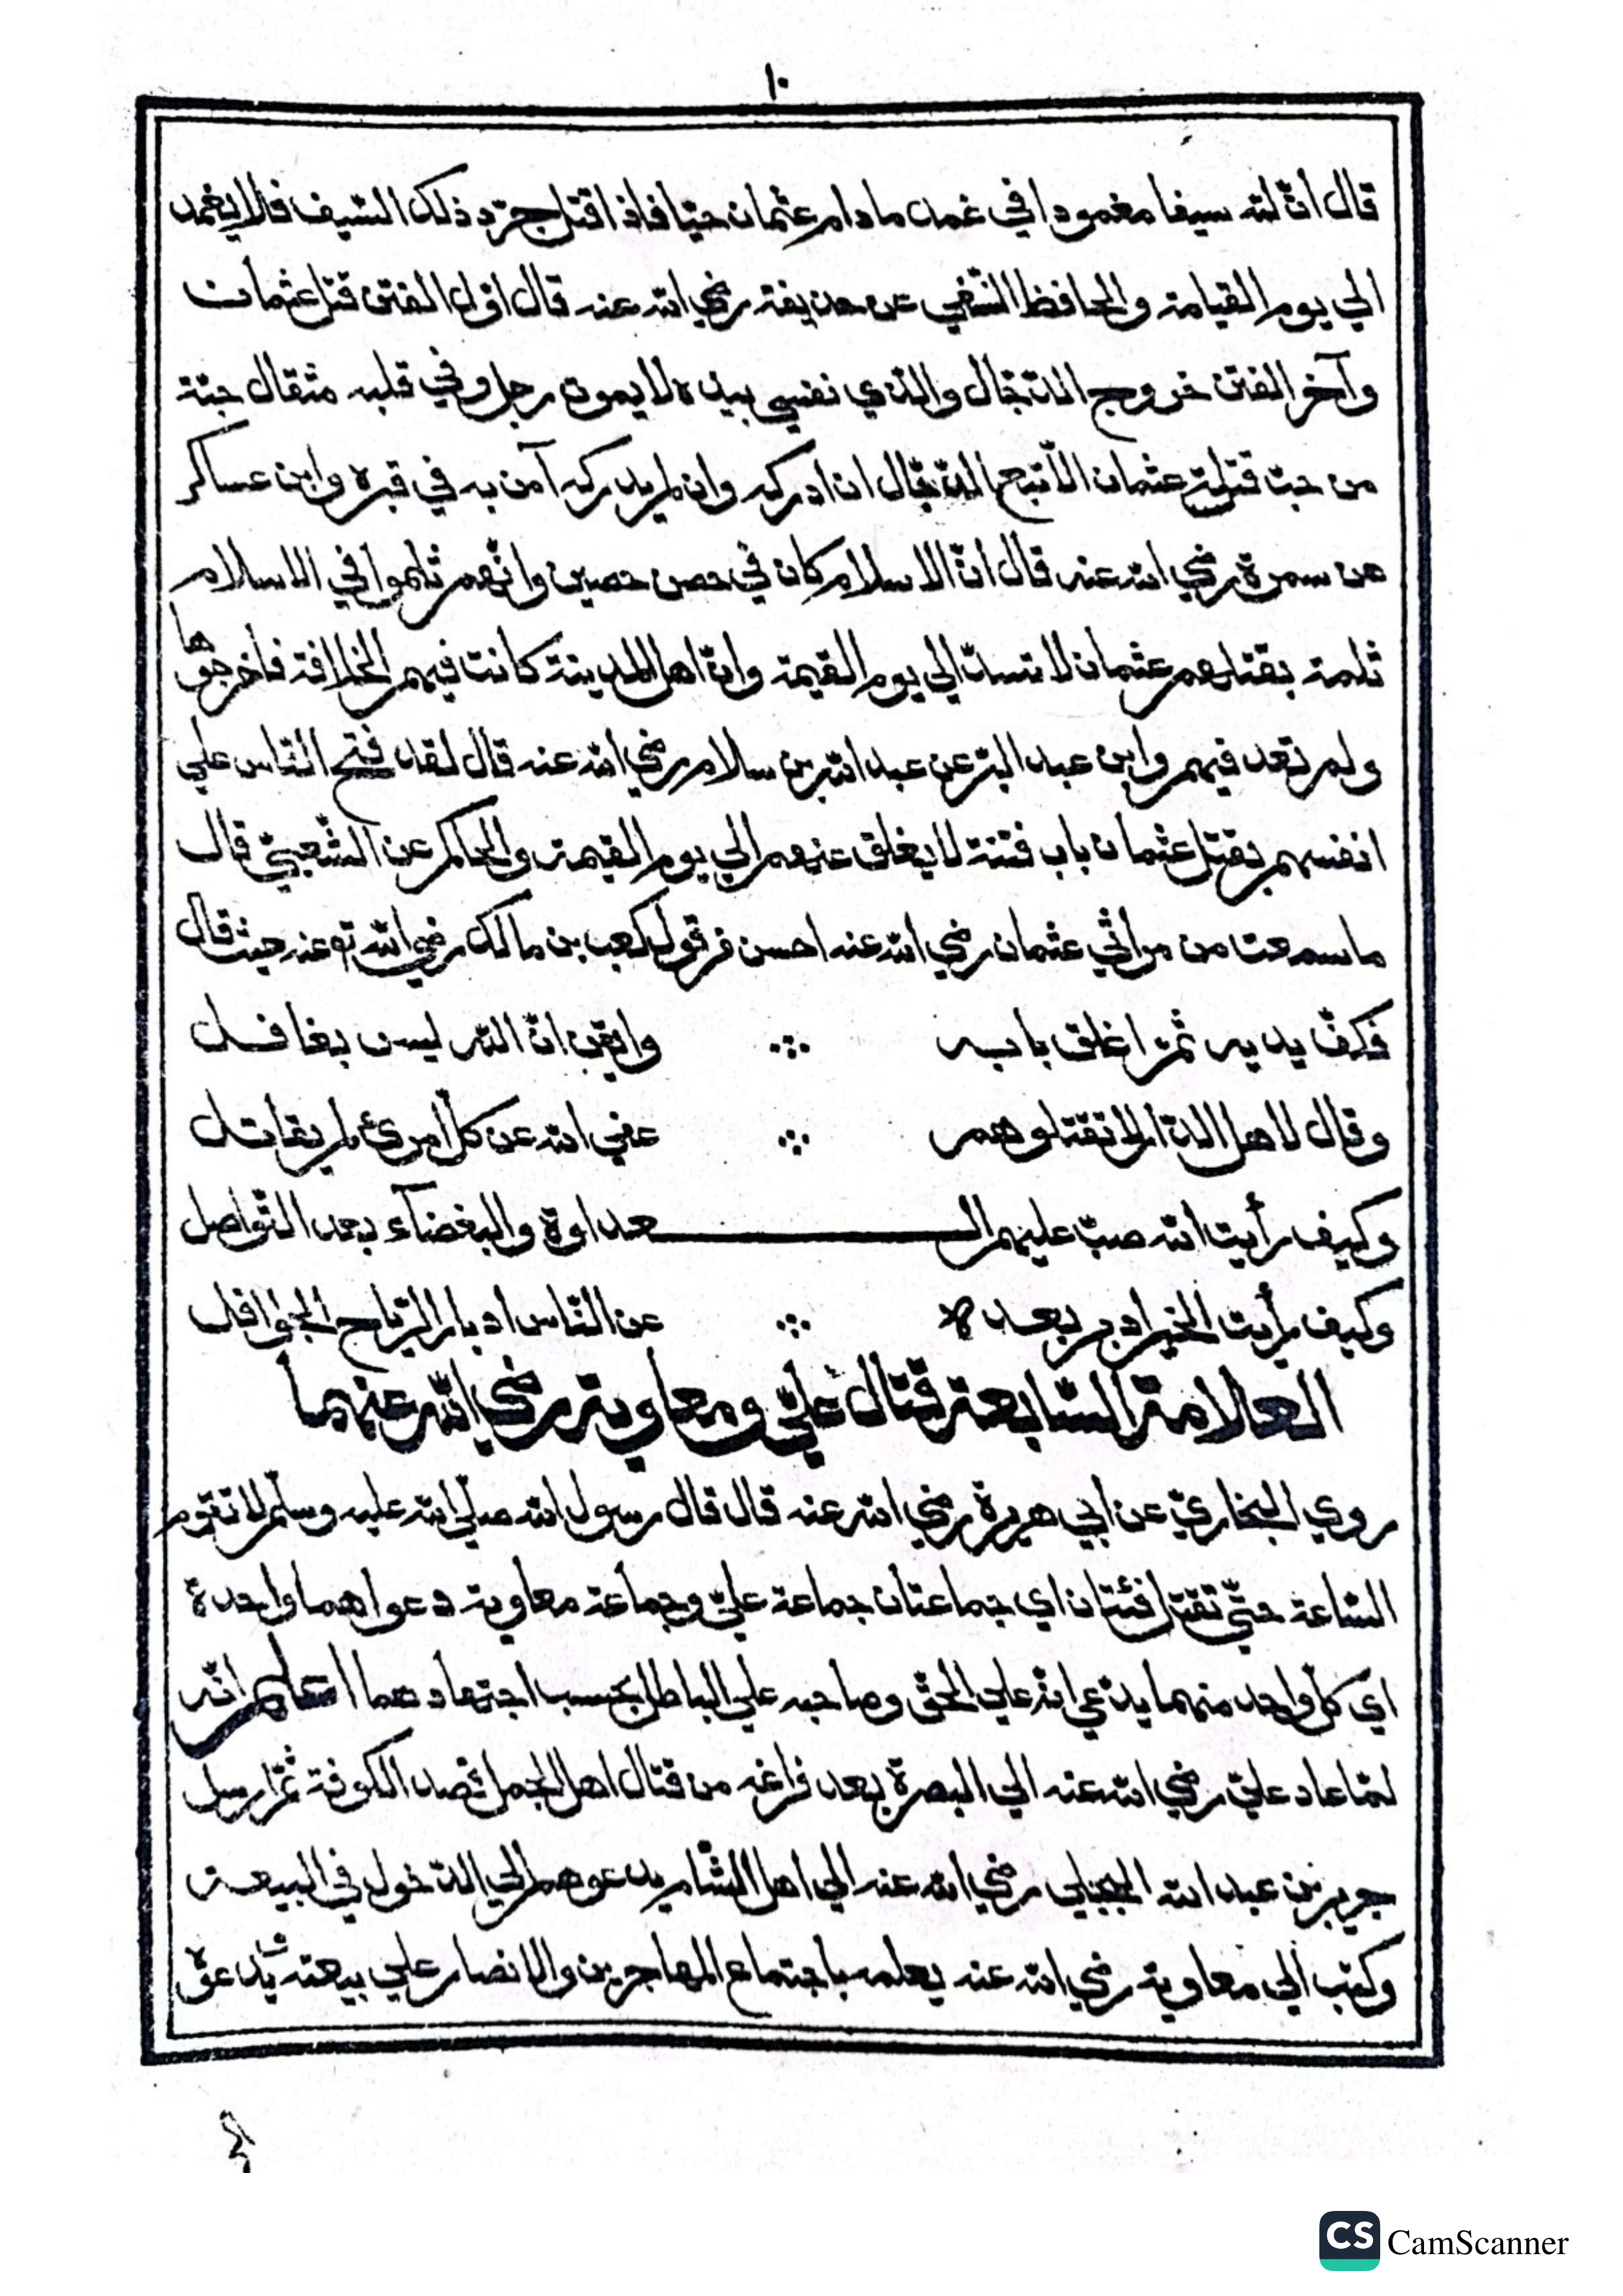 ١٠
قال انّ لله سيفا مغمودا في غمده مادام عثمان حيّا فاذا قتل جرّد ذلك السّيف فلا يغمد
الي يوم القيامة والحافظ السّلفي عن حذيفة رضي الله عنه قال اوّل الفتن قتل عثمان
وآخر الفتن خروج الدّجّال والّذي نفسي بيده لا يموت رجل وفي قلبه مثقال حبّة
من حبّ قتلة عثمان الّا تبع الدّجّال ان ادركه وان لم يدركه آمن به في قبره وابن عساكر
عن سمرة رضي الله عنه قال انّ الاسلام كان في حصن حصين وانّهم ثلموا في الاسلام
ثلمة بقتلهم عثمان لا تسدّ الي يوم القيمة وانّ اهل المدينة كانت فيهم الخلافة فاخرجوها
ولم تعد فيهم وابن عبد البرّ عن عبد الله بن سلام رضي الله عنه قال لقد فتح النّاس علي
انفسهم بقتل عثمان باب فتنة لا يغلق عنهم الي يوم القيمة والحاكم عن الشّعبيّ قال
ما سمعت من مراثي عثمان رضي الله عنه احسن من قول كعب بن مالك رضي الله تع عنه حيث قال
فكفّ يديه ثمّ اغلق بابه ∴ وايقن انّ الله ليس بغافل
وقال لاهل الدّار لا تقتلوهم ∴ عفي الله عن كلّ امرئ لم يقاتل
وكيف رأيت الله صبّ عليهم الـ ـعداوة والبغضآء بعد التّواصل
وكيف رأيت الخير ادبر بعده ∴ عن النّاس ادبار الرّياح الجوافل
العلامة السّابعة قتال عليّ ومعاوية رضي الله عنهما
روي البخاريّ عن ابي هريرة رضي الله عنه قال قال رسول الله صلّي الله عليه وسلّم لا تقوم
السّاعة حتّي تقتتل فئتان اي جماعتان جماعة عليّ وجماعة معاوية دعواهما واحدة
اي كلّ واحد منهما يدّعي انّه علي الحقّ وصاحبه علي الباطل بحسب اجتهادهما اعلم انّه
لمّا عاد عليّ رضي الله عنه الي البصرة بعد فراغه من قتال اهل الجمل قصد الكوفة ثمّ ارسل
جرير بن عبد الله البجلي رضي الله عنه الي اهل الشّام يدعوهم الي الدّخول في البيعة
وكتب الي معاوية رضي الله عنه يعلمه باجتماع المهاجرين والانصار علي بيعته ويدعوه
CS CamScanner